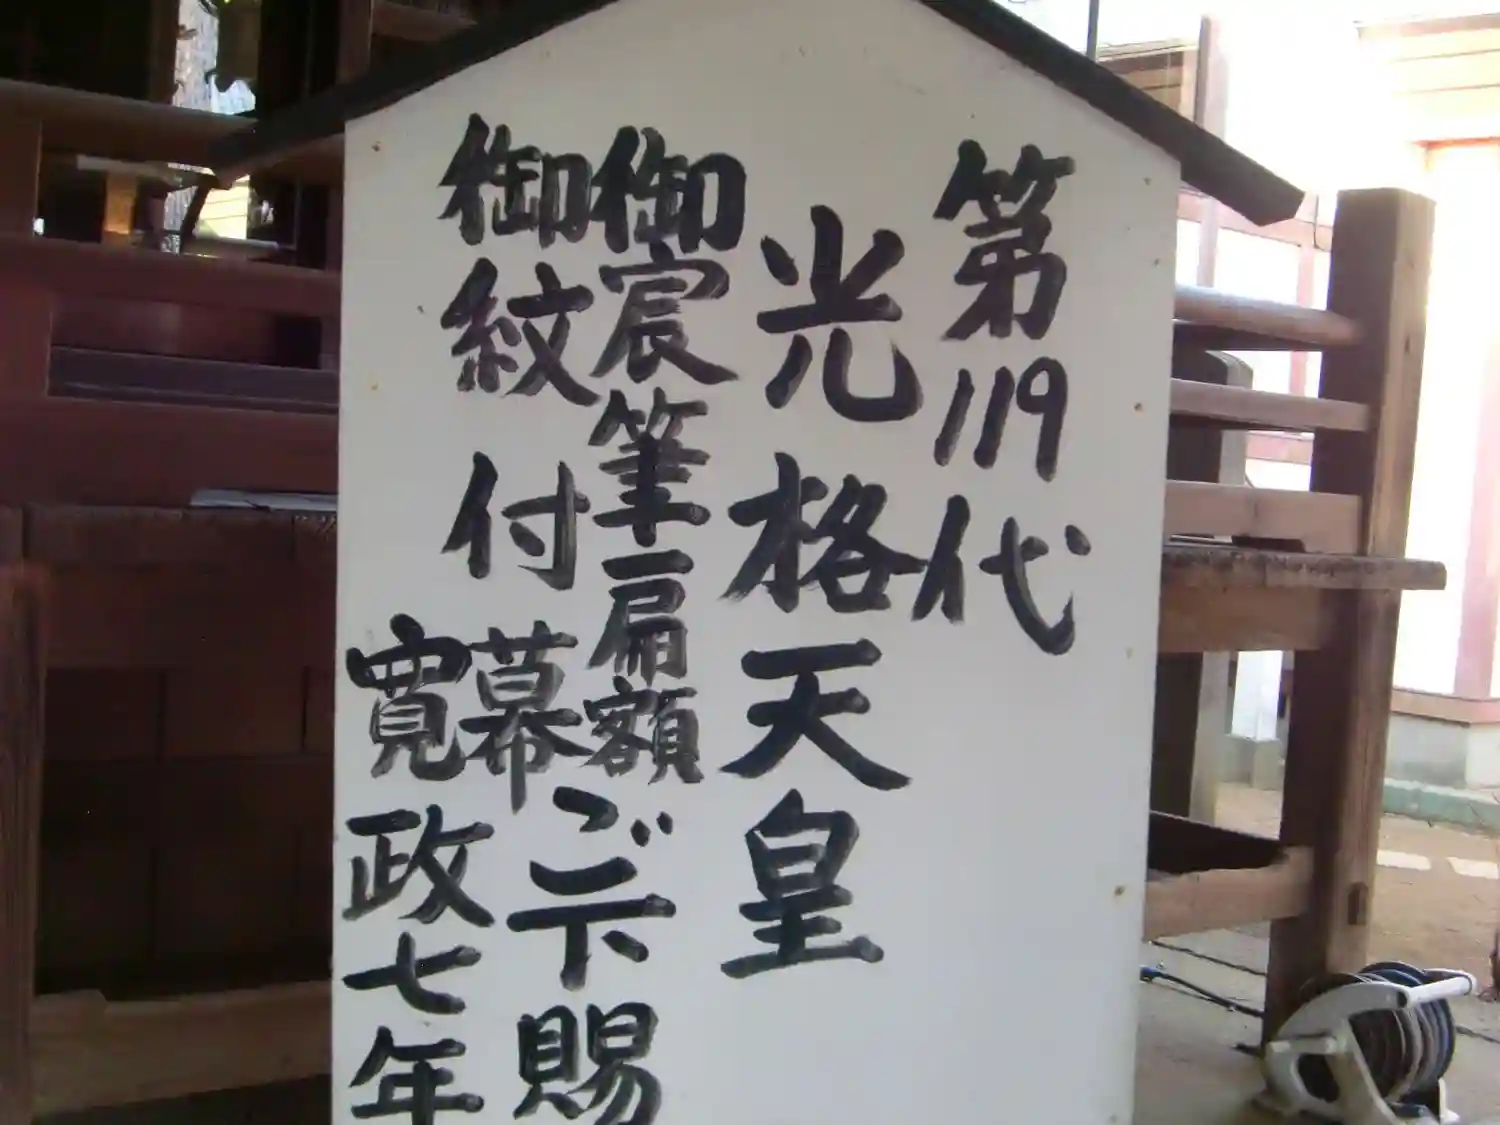 第119代
光格天皇
御宸筆扁額
御紋付幕
ご下賜
寛政七年